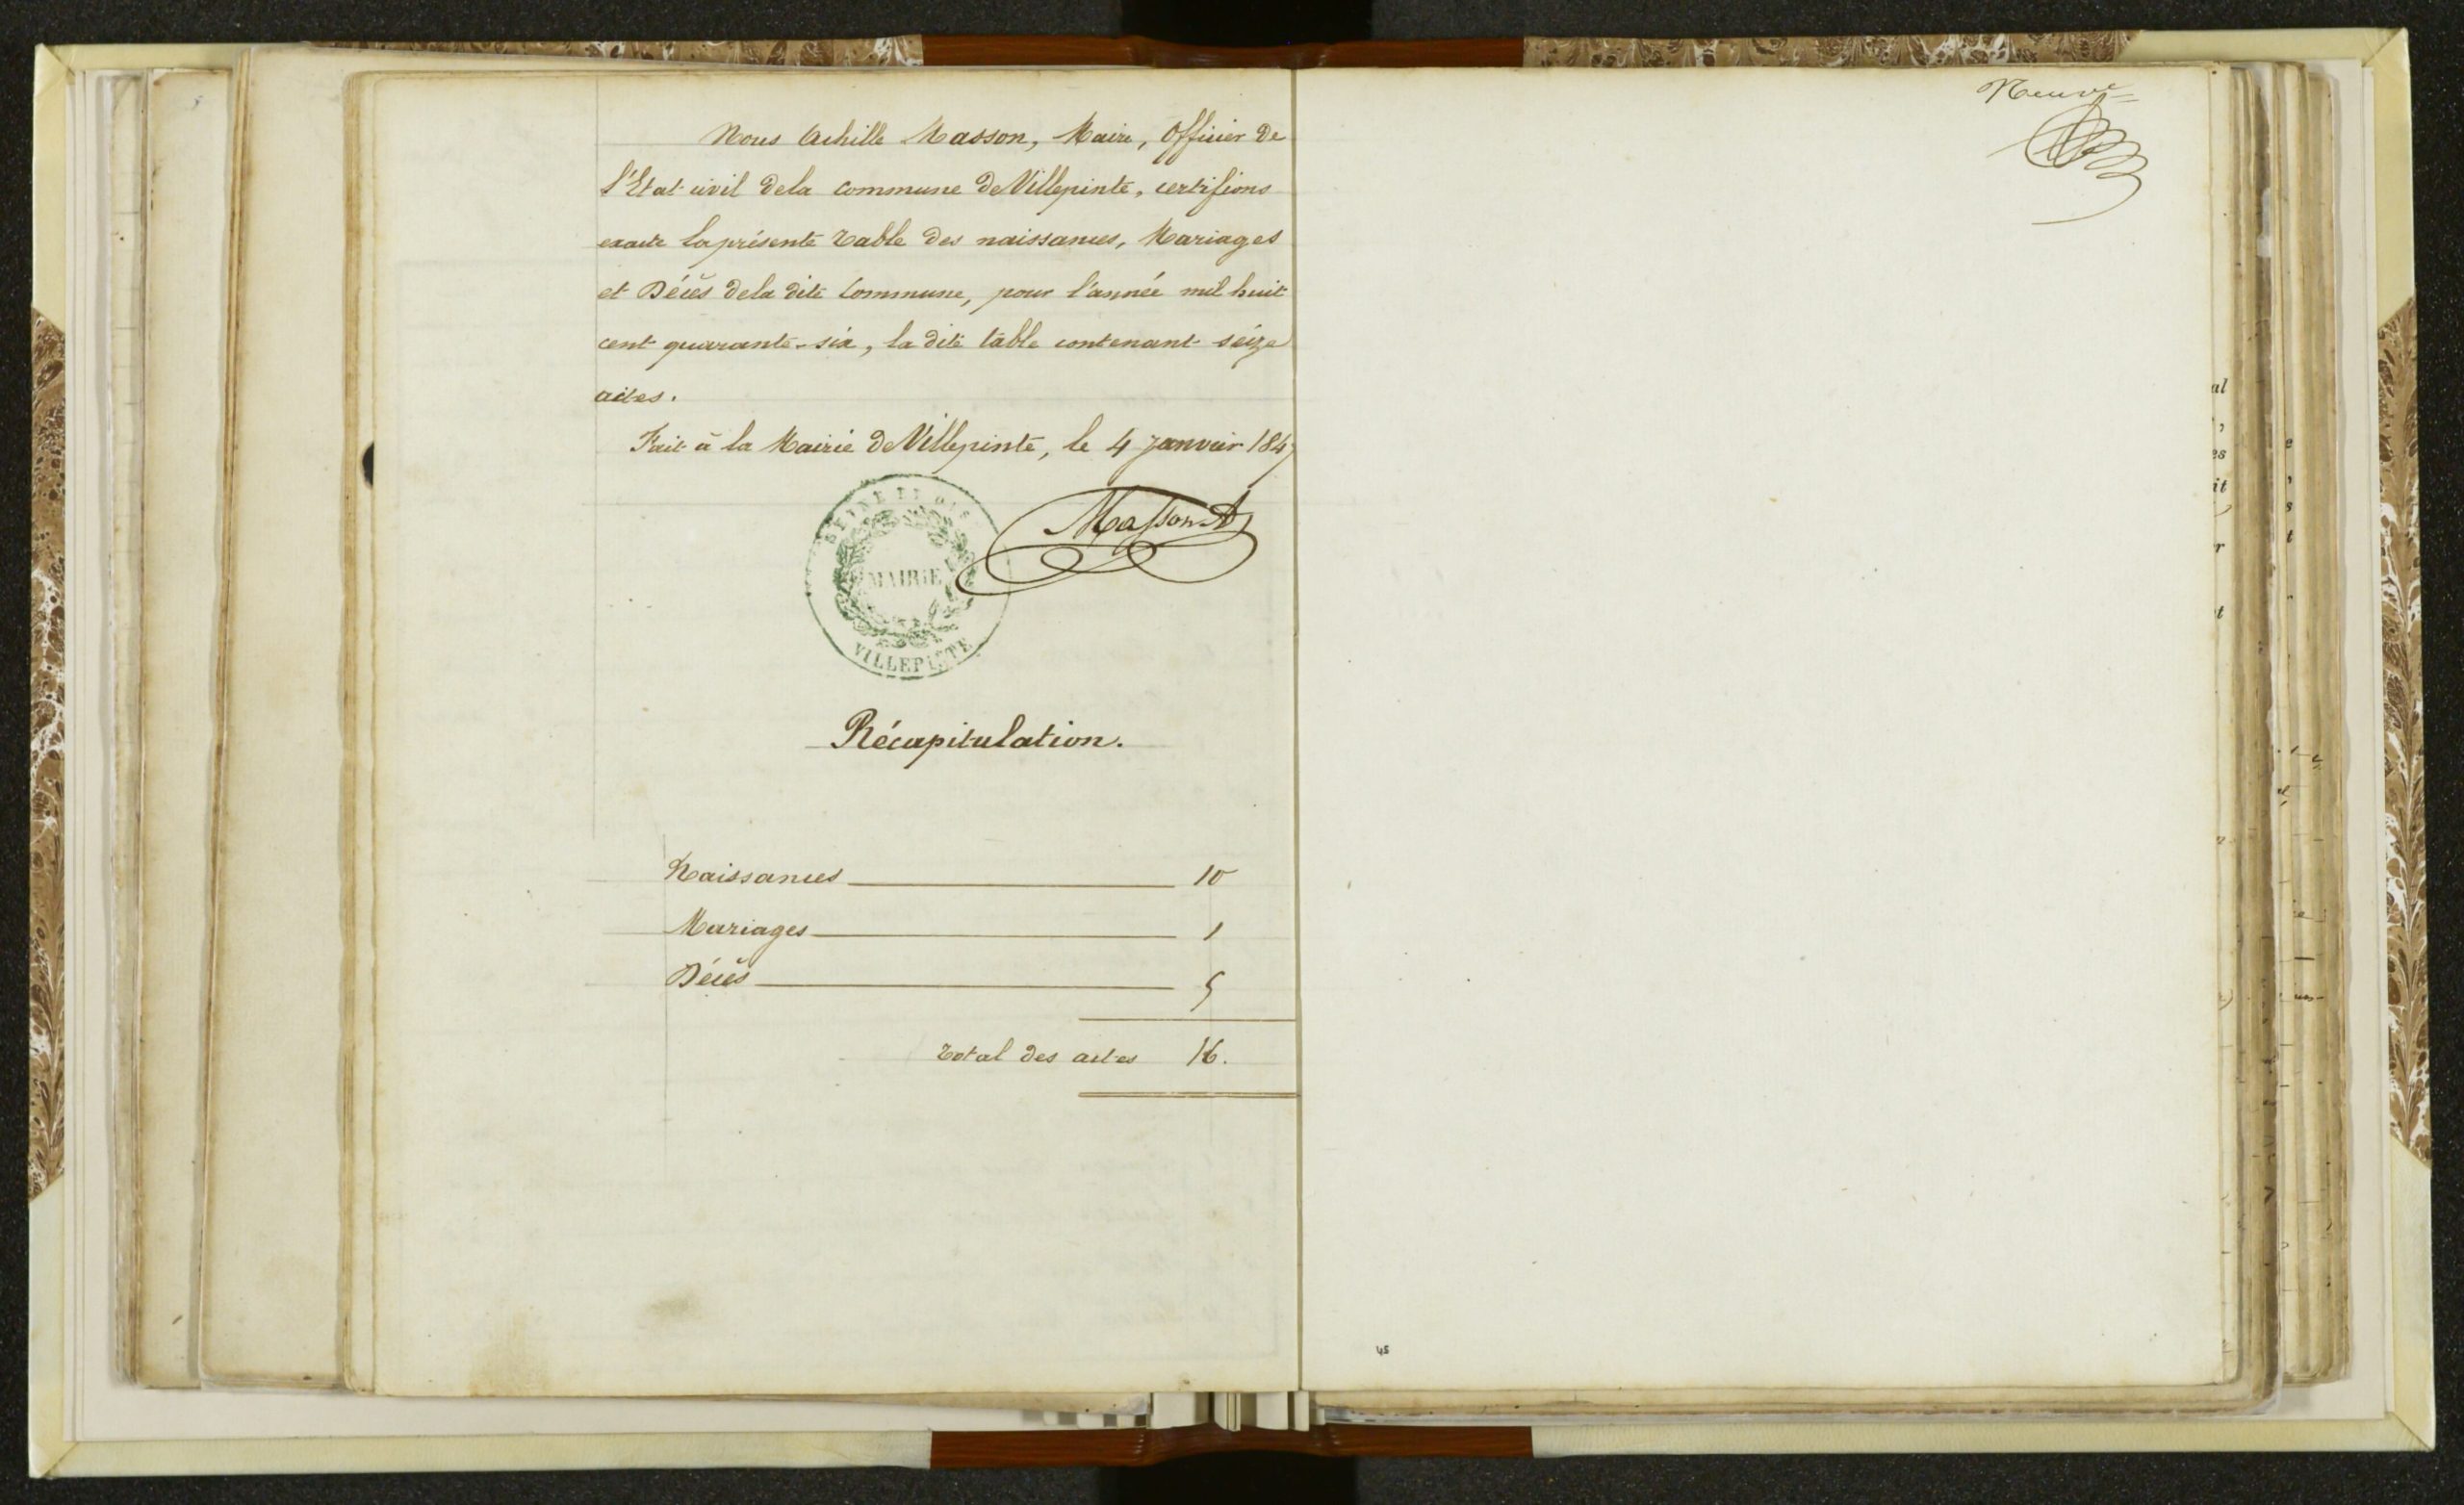 Nous Achille Masson, Maire, Officier de
l'Etat civil dela commune de Villepinte, certifions
exacte la présente Table des naissances, Mariages
et Décès dela dite Commune, pour l'année mil huit
cent quarante-six, la dite table contenant seize
actes.
Fait à la Mairie de Villepinte, le 4 janvier 1847
SEINE ET OISE
MAIRIE
VILLEPINTE
Masson A
Récapitulation.
Naissances 10
Mariages 1
Décès 5
Total des actes 16.
Neuve
45